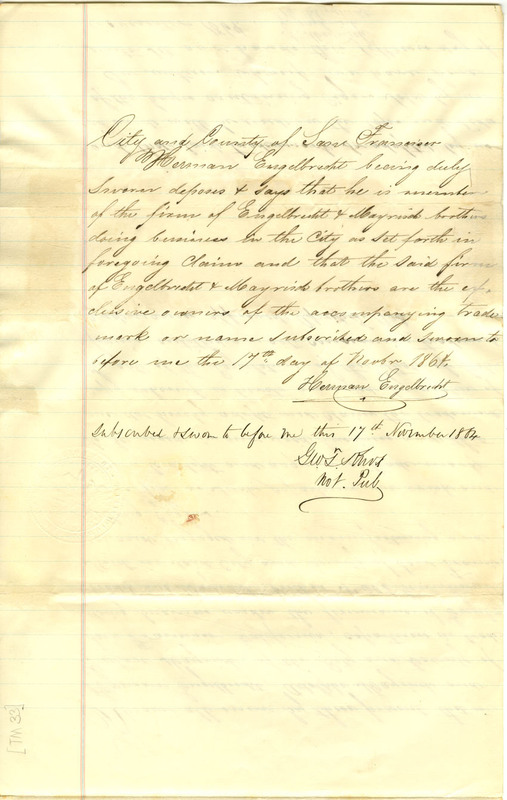 City and County of San Francisco
Herman Engelbrecht being duly
Sworn deposes & says that he is member
of the firm of Engelbrecht & Mayrisch brothers
doing business in the City as set forth in
foregoing Claim and that the said firm
of Engelbrecht & Mayrisch brothers are the ex
clusive owners of the accompanying trade
mark or name subscribed and sworn to
before me the 17th day of Novbr 1864.
Herman Engelbrecht
Subscribed & sworn to before me this 17th November 1864
Geo T. Knox
Not. Pub
[TM 33]